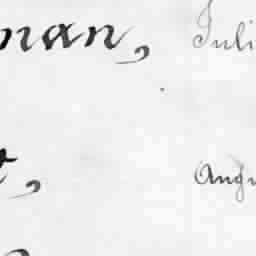 man, Juli
t, Augu